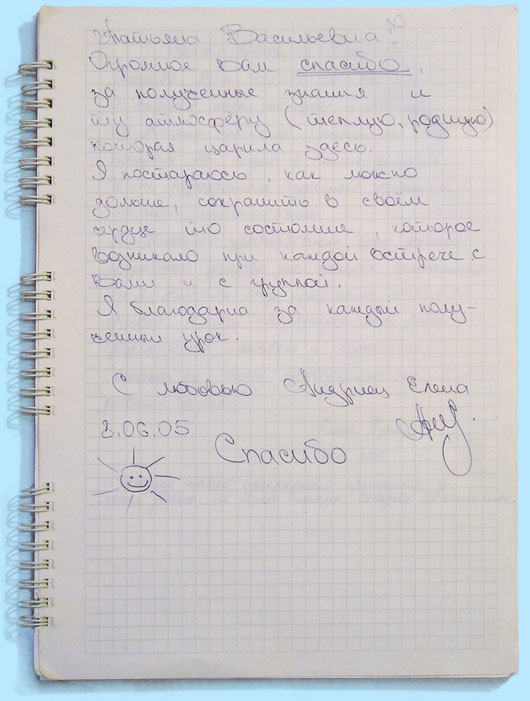 Татьяна Васильевна!
Огромное Вам спасибо,
за полученные знания и
ту атмосферу (теплую, родную)
которая царила здесь.
Я постараюсь, как можно
дольше, сохранить в своём
сердце то состояние, которое
возникало при каждой встрече с
Вами и с группой.
Я благодарна за каждый полу-
ченный урок.
С любовью Андриец Елена
8.06.05
Спасибо